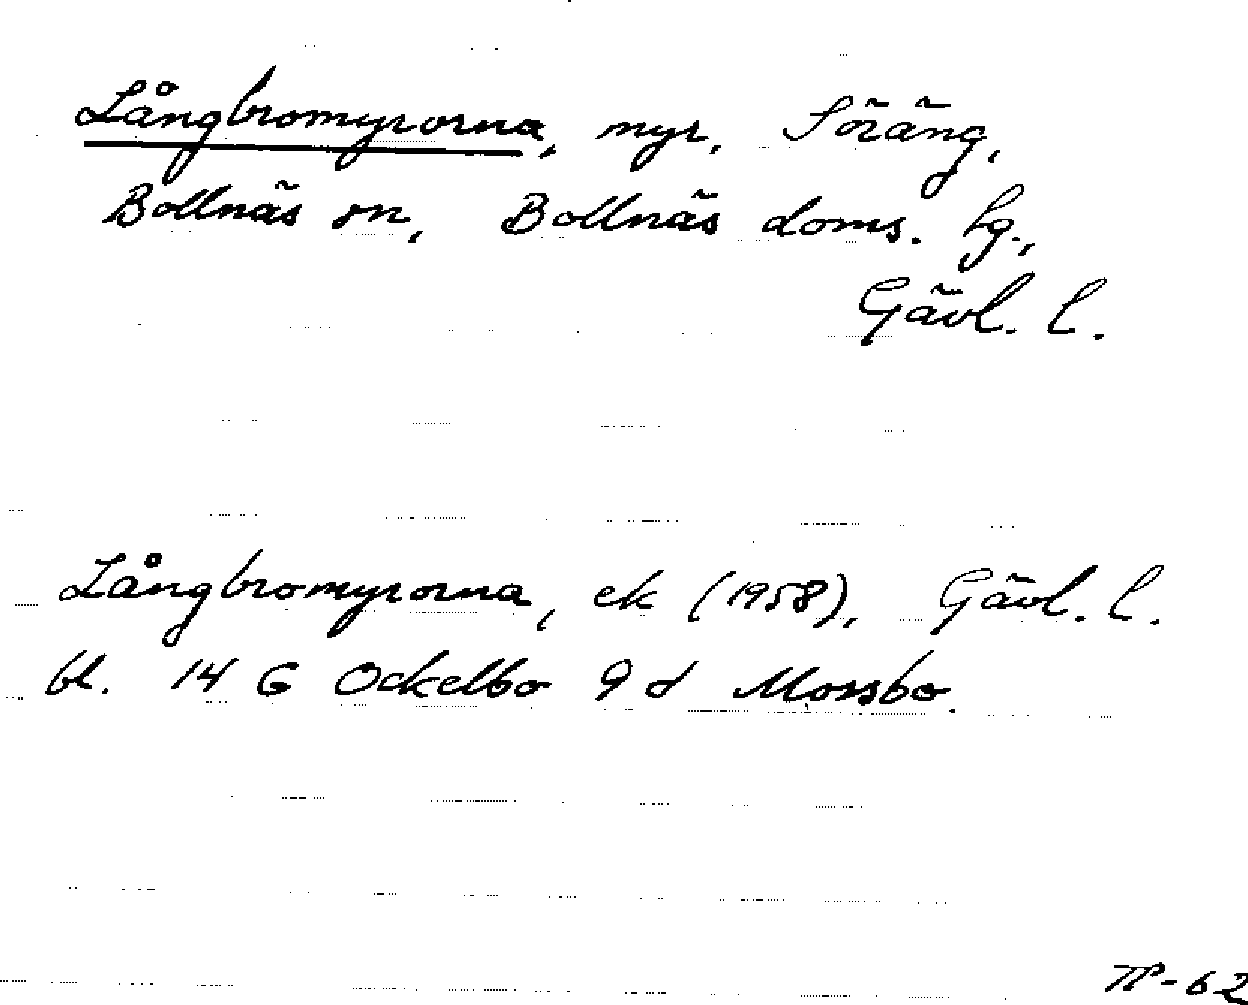 Långbromyrorna, myr, Söräng,
Bollnäs sn, Bollnäs doms. hg.,
Gävl. l.
Långbromyrorna, ek (1958), Gävl. l.
bl. 14 G Ockelbo 9 d Mossbo.
TP-62